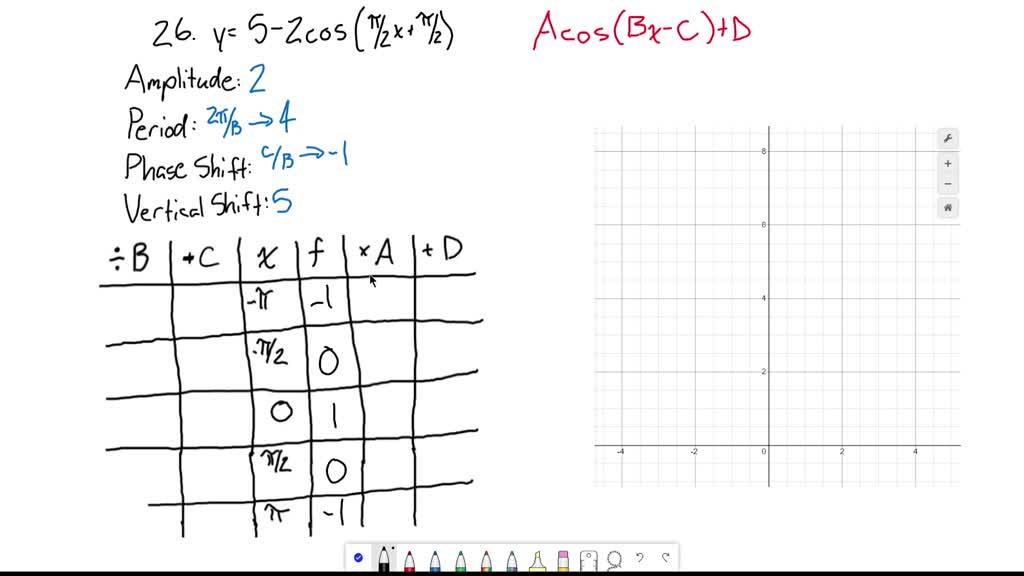 26. y = 5-2cos(π/2x+π/2)
Acos(Bx-C)+D
Amplitude: 2
Period: 2π/B → 4
Phase Shift: C/B → -1
Vertical Shift: 5
÷B +C x f ×A +D
-π -1
-π/2 0
0 1
π/2 0
π -1
8
6
4
2
-4 -2 0 2 4